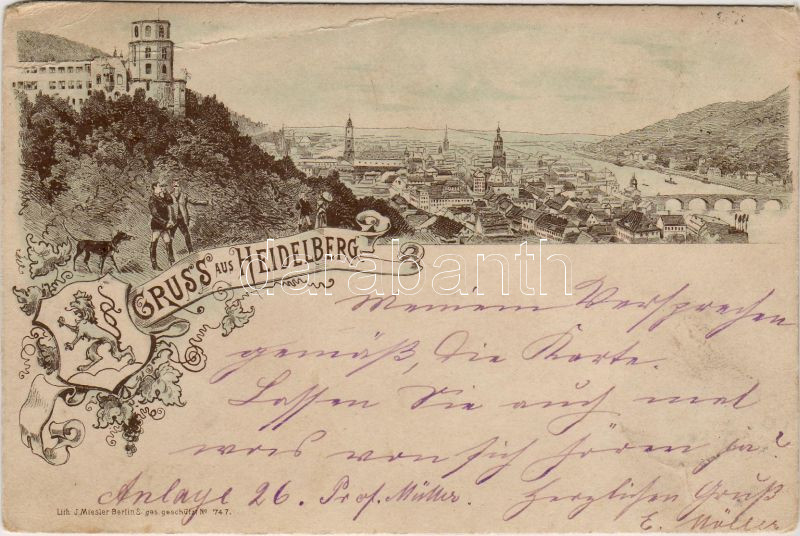 GRUSS AUS HEIDELBERG
darabanth
Meinem Versprechen
gemäß, die Karte.
Lassen Sie auch mal
was von sich hören ja?
Anlage 26. Prof. Müller. Herzlichen Gruß
E. Möller
Lith. J. Miesler Berlin S. ges. geschützt No 747.